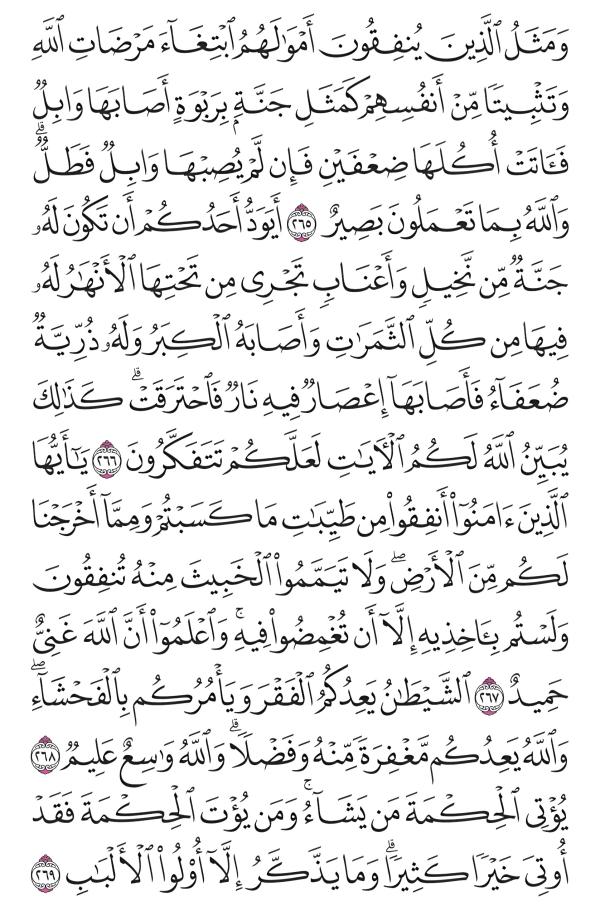 وَمَثَلُ ٱلَّذِينَ يُنفِقُونَ أَمْوَٰلَهُمُ ٱبْتِغَآءَ مَرْضَاتِ ٱللَّهِ
وَتَثْبِيتًا مِّنْ أَنفُسِهِمْ كَمَثَلِ جَنَّةٍۭ بِرَبْوَةٍ أَصَابَهَا وَابِلٌ
فَـَٔاتَتْ أُكُلَهَا ضِعْفَيْنِ فَإِن لَّمْ يُصِبْهَا وَابِلٌ فَطَلٌّ ۗ
وَٱللَّهُ بِمَا تَعْمَلُونَ بَصِيرٌ ٢٦٥ أَيَوَدُّ أَحَدُكُمْ أَن تَكُونَ لَهُۥ
جَنَّةٌ مِّن نَّخِيلٍ وَأَعْنَابٍ تَجْرِى مِن تَحْتِهَا ٱلْأَنْهَٰرُ لَهُۥ
فِيهَا مِن كُلِّ ٱلثَّمَرَٰتِ وَأَصَابَهُ ٱلْكِبَرُ وَلَهُۥ ذُرِّيَّةٌ
ضُعَفَآءُ فَأَصَابَهَآ إِعْصَارٌ فِيهِ نَارٌ فَٱحْتَرَقَتْ ۗ كَذَٰلِكَ
يُبَيِّنُ ٱللَّهُ لَكُمُ ٱلْـَٔايَٰتِ لَعَلَّكُمْ تَتَفَكَّرُونَ ٢٦٦ يَٰٓأَيُّهَا
ٱلَّذِينَ ءَامَنُوٓا۟ أَنفِقُوا۟ مِن طَيِّبَٰتِ مَا كَسَبْتُمْ وَمِمَّآ أَخْرَجْنَا
لَكُم مِّنَ ٱلْأَرْضِ ۖ وَلَا تَيَمَّمُوا۟ ٱلْخَبِيثَ مِنْهُ تُنفِقُونَ
وَلَسْتُم بِـَٔاخِذِيهِ إِلَّآ أَن تُغْمِضُوا۟ فِيهِ ۚ وَٱعْلَمُوٓا۟ أَنَّ ٱللَّهَ غَنِىٌّ
حَمِيدٌ ٢٦٧ ٱلشَّيْطَٰنُ يَعِدُكُمُ ٱلْفَقْرَ وَيَأْمُرُكُم بِٱلْفَحْشَآءِ ۖ
وَٱللَّهُ يَعِدُكُم مَّغْفِرَةً مِّنْهُ وَفَضْلًا ۗ وَٱللَّهُ وَٰسِعٌ عَلِيمٌ ٢٦٨
يُؤْتِى ٱلْحِكْمَةَ مَن يَشَآءُ ۚ وَمَن يُؤْتَ ٱلْحِكْمَةَ فَقَدْ
أُوتِىَ خَيْرًا كَثِيرًا ۗ وَمَا يَذَّكَّرُ إِلَّآ أُو۟لُوا۟ ٱلْأَلْبَٰبِ ٢٦٩